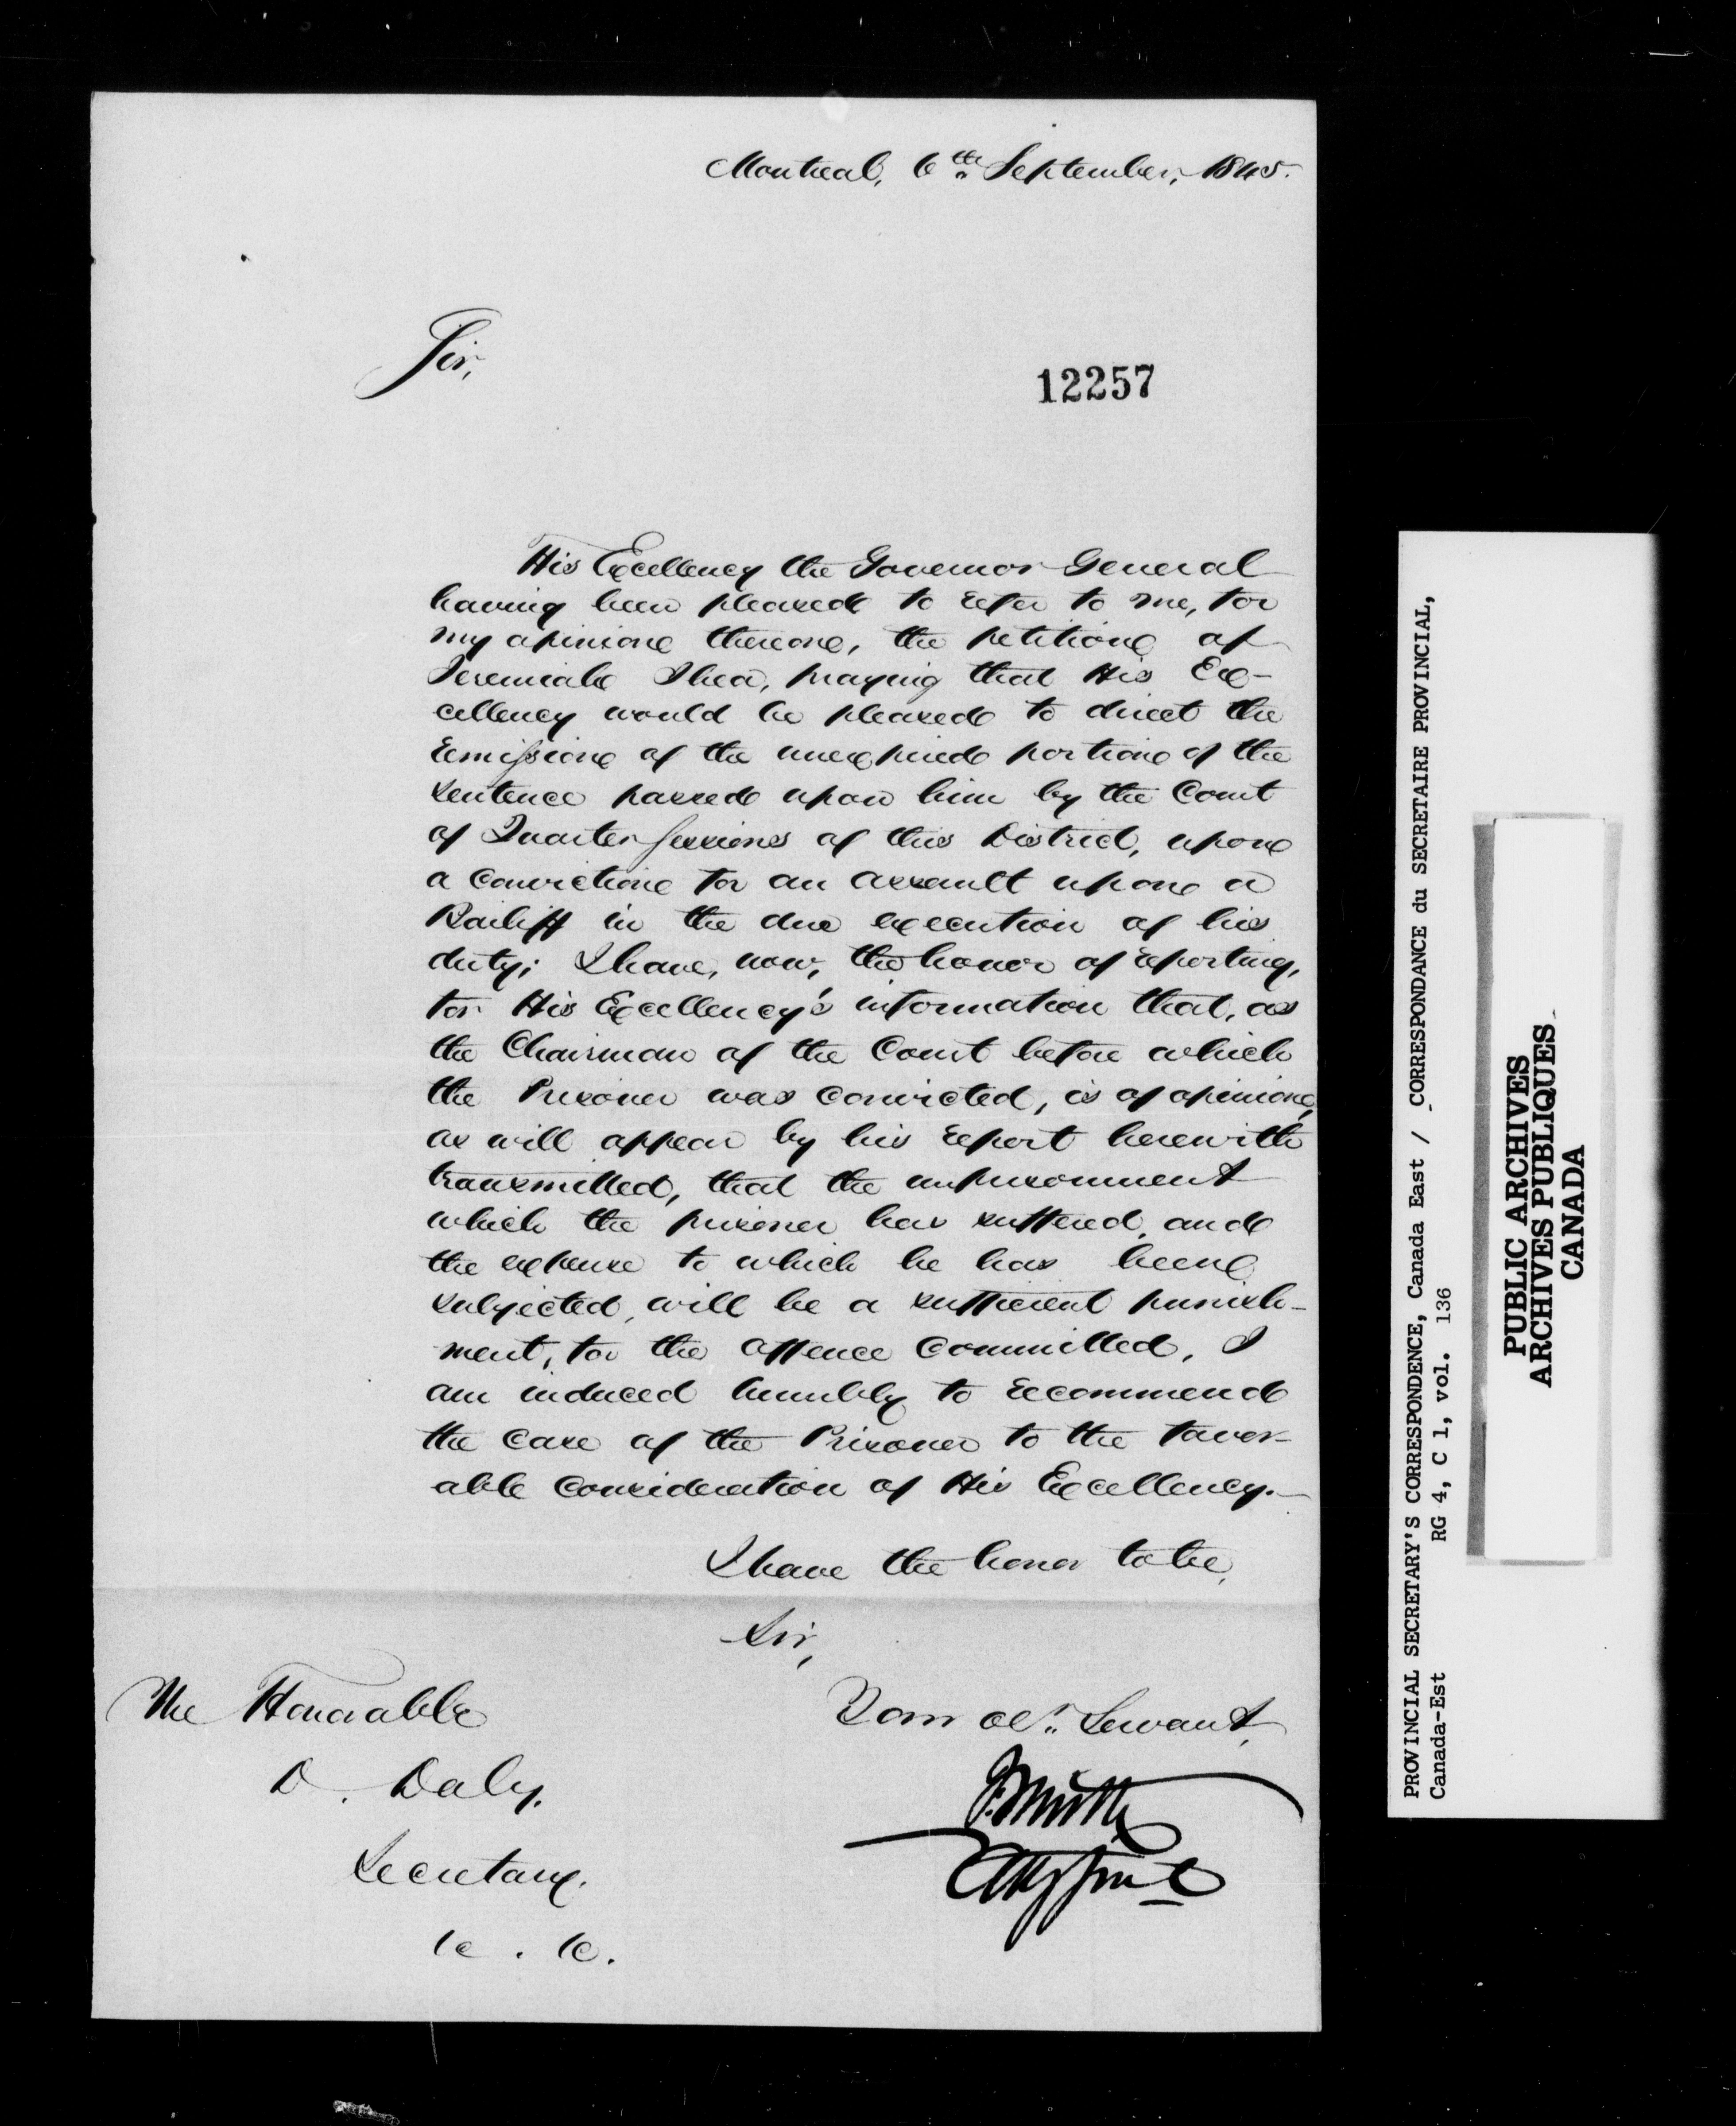 Montreal, 6th September, 1845.
Sir,
12257
His Excellency the Governor General
having been pleased to refer to me, for
my opinion thereon, the petition of
Jeremiah Shea, praying that His Ex-
cellency would be pleased to direct the
remission of the unexpired portion of the
sentence passed upon him by the Court
of Quarter Sessions of this District, upon
a conviction for an assault upon a
Bailiff in the due execution of his
duty; I have, now, the honor of reporting,
for His Excellency's information that, as
the Chairman of the Court before which
the Prisoner was convicted, is of opinion,
as will appear by his report herewith
transmitted, that the imprisonment
which the prisoner has suffered, and
the expense to which he has been
subjected, will be a sufficient punish-
ment, for the offence committed, I
am induced humbly to recommend
the case of the Prisoner to the favor-
able consideration of His Excellency.
I have the honor to be,
Sir,
Your obt. Servant,
The Honorable
D. Daly.
Secretary.
&c. &c.
PROVINCIAL SECRETARY'S CORRESPONDENCE, Canada East / CORRESPONDANCE du SECRETAIRE PROVINCIAL,
Canada-Est RG 4, C 1, vol. 136
PUBLIC ARCHIVES
ARCHIVES PUBLIQUES
CANADA